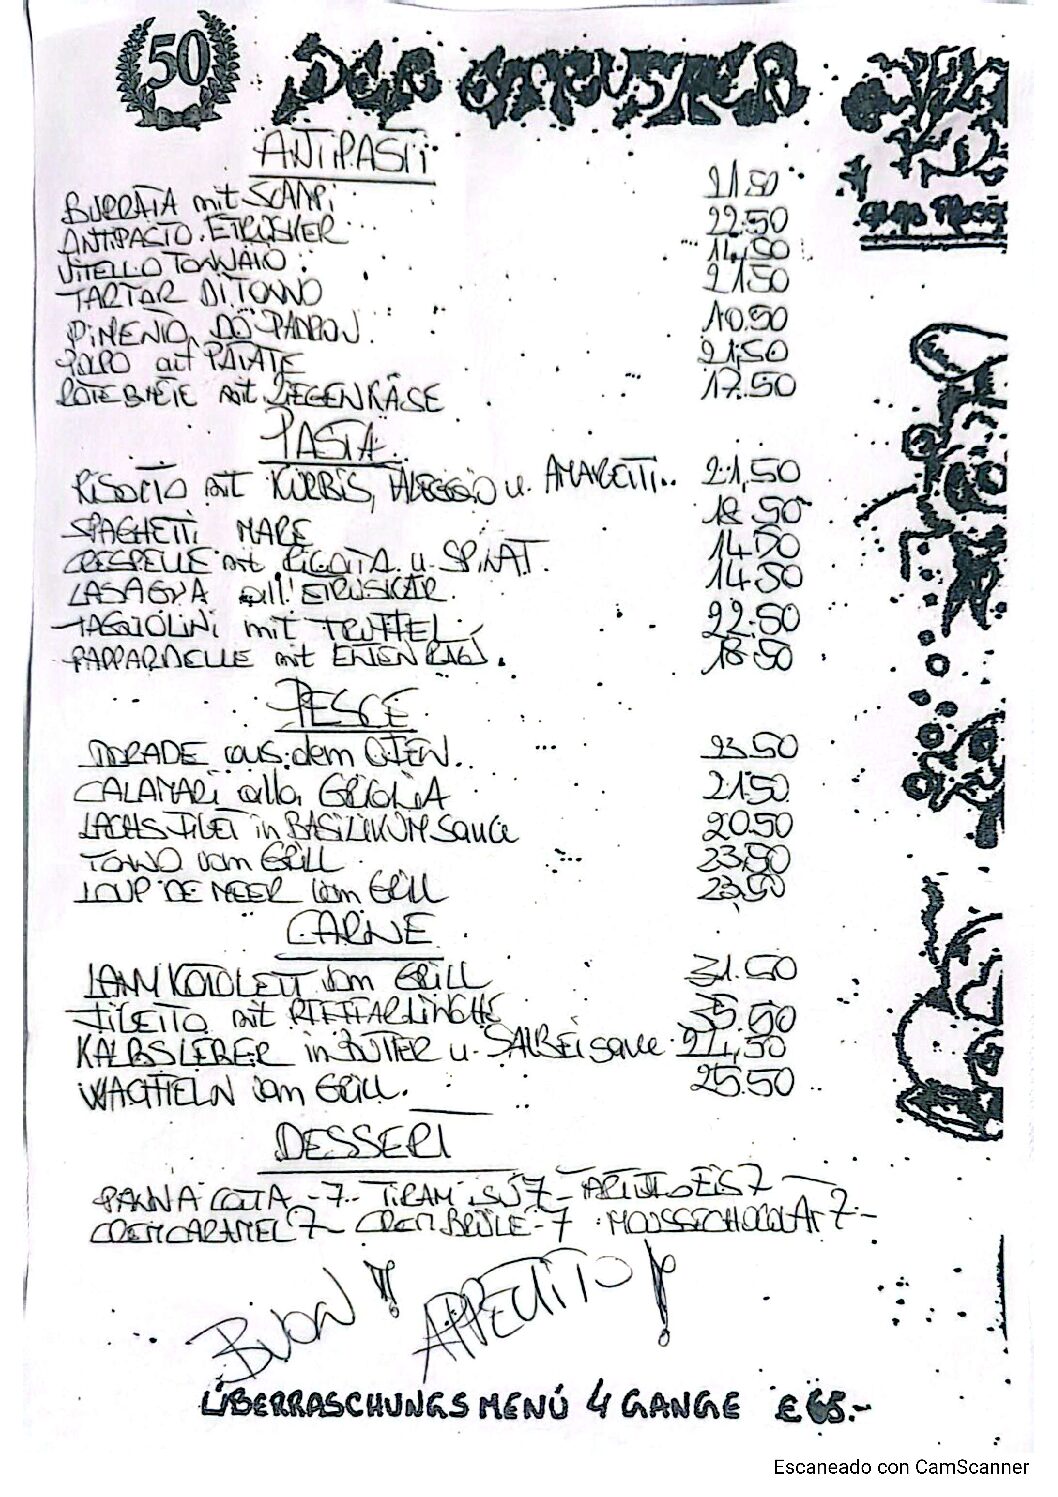 50 DER ETRUSKER
ANTIPASTI
BURRATA mit SCAMPI 21.50
ANTIPASTO ETRUSKER 22.50
VITELLO TONNATO 14.50
TARTAR DI TONNO 21.50
PIMENTO DO PADRON 10.50
POLPO mit PATATE 21.50
ROTE BHETE mit ZIEGENKÄSE 17.50
PASTA
RISOTTO mit KÜRBIS, TALEGGIO u. AMARETTI 21,50
SPAGHETTI MARE 18.50
CRESPELLE mit RICOTTA u. SPINAT. 14.50
LASAGNA all' ETRUSKER. 14.50
TAGLIOLINI mit TRÜFFEL 22.50
PAPPARDELLE mit ENTEN RAGÙ. 18.50
PESCE
DORADE aus dem OFEN. 23.50
CALAMARI alla GRIGLIA 21.50
LACHSFILET in BASILIKUM sauce 20.50
TONNO vom GRILL 23,50
LOUP DE MEER vom GRILL 23,50
CARNE
LAMMKOTOLETT vom GRILL 31.50
FILETTO mit PFIFFERLINGHE 35.50
KALBSLEBER in BUTTER u. SALBEI sauce 24,50
WACHTELN vom GRILL. 25.50
DESSERT
PANNA COTTA -7- TIRAMISÙ 7- TARTUFO EIS 7-
CREM CARAMEL 7- CREM BRULE -7 MOUSSECHOCOLAT 7-
BUON !!
APPETITO !
ÜBERRASCHUNGSMENÜ 4 GANGE € 65.-
Escaneado con CamScanner